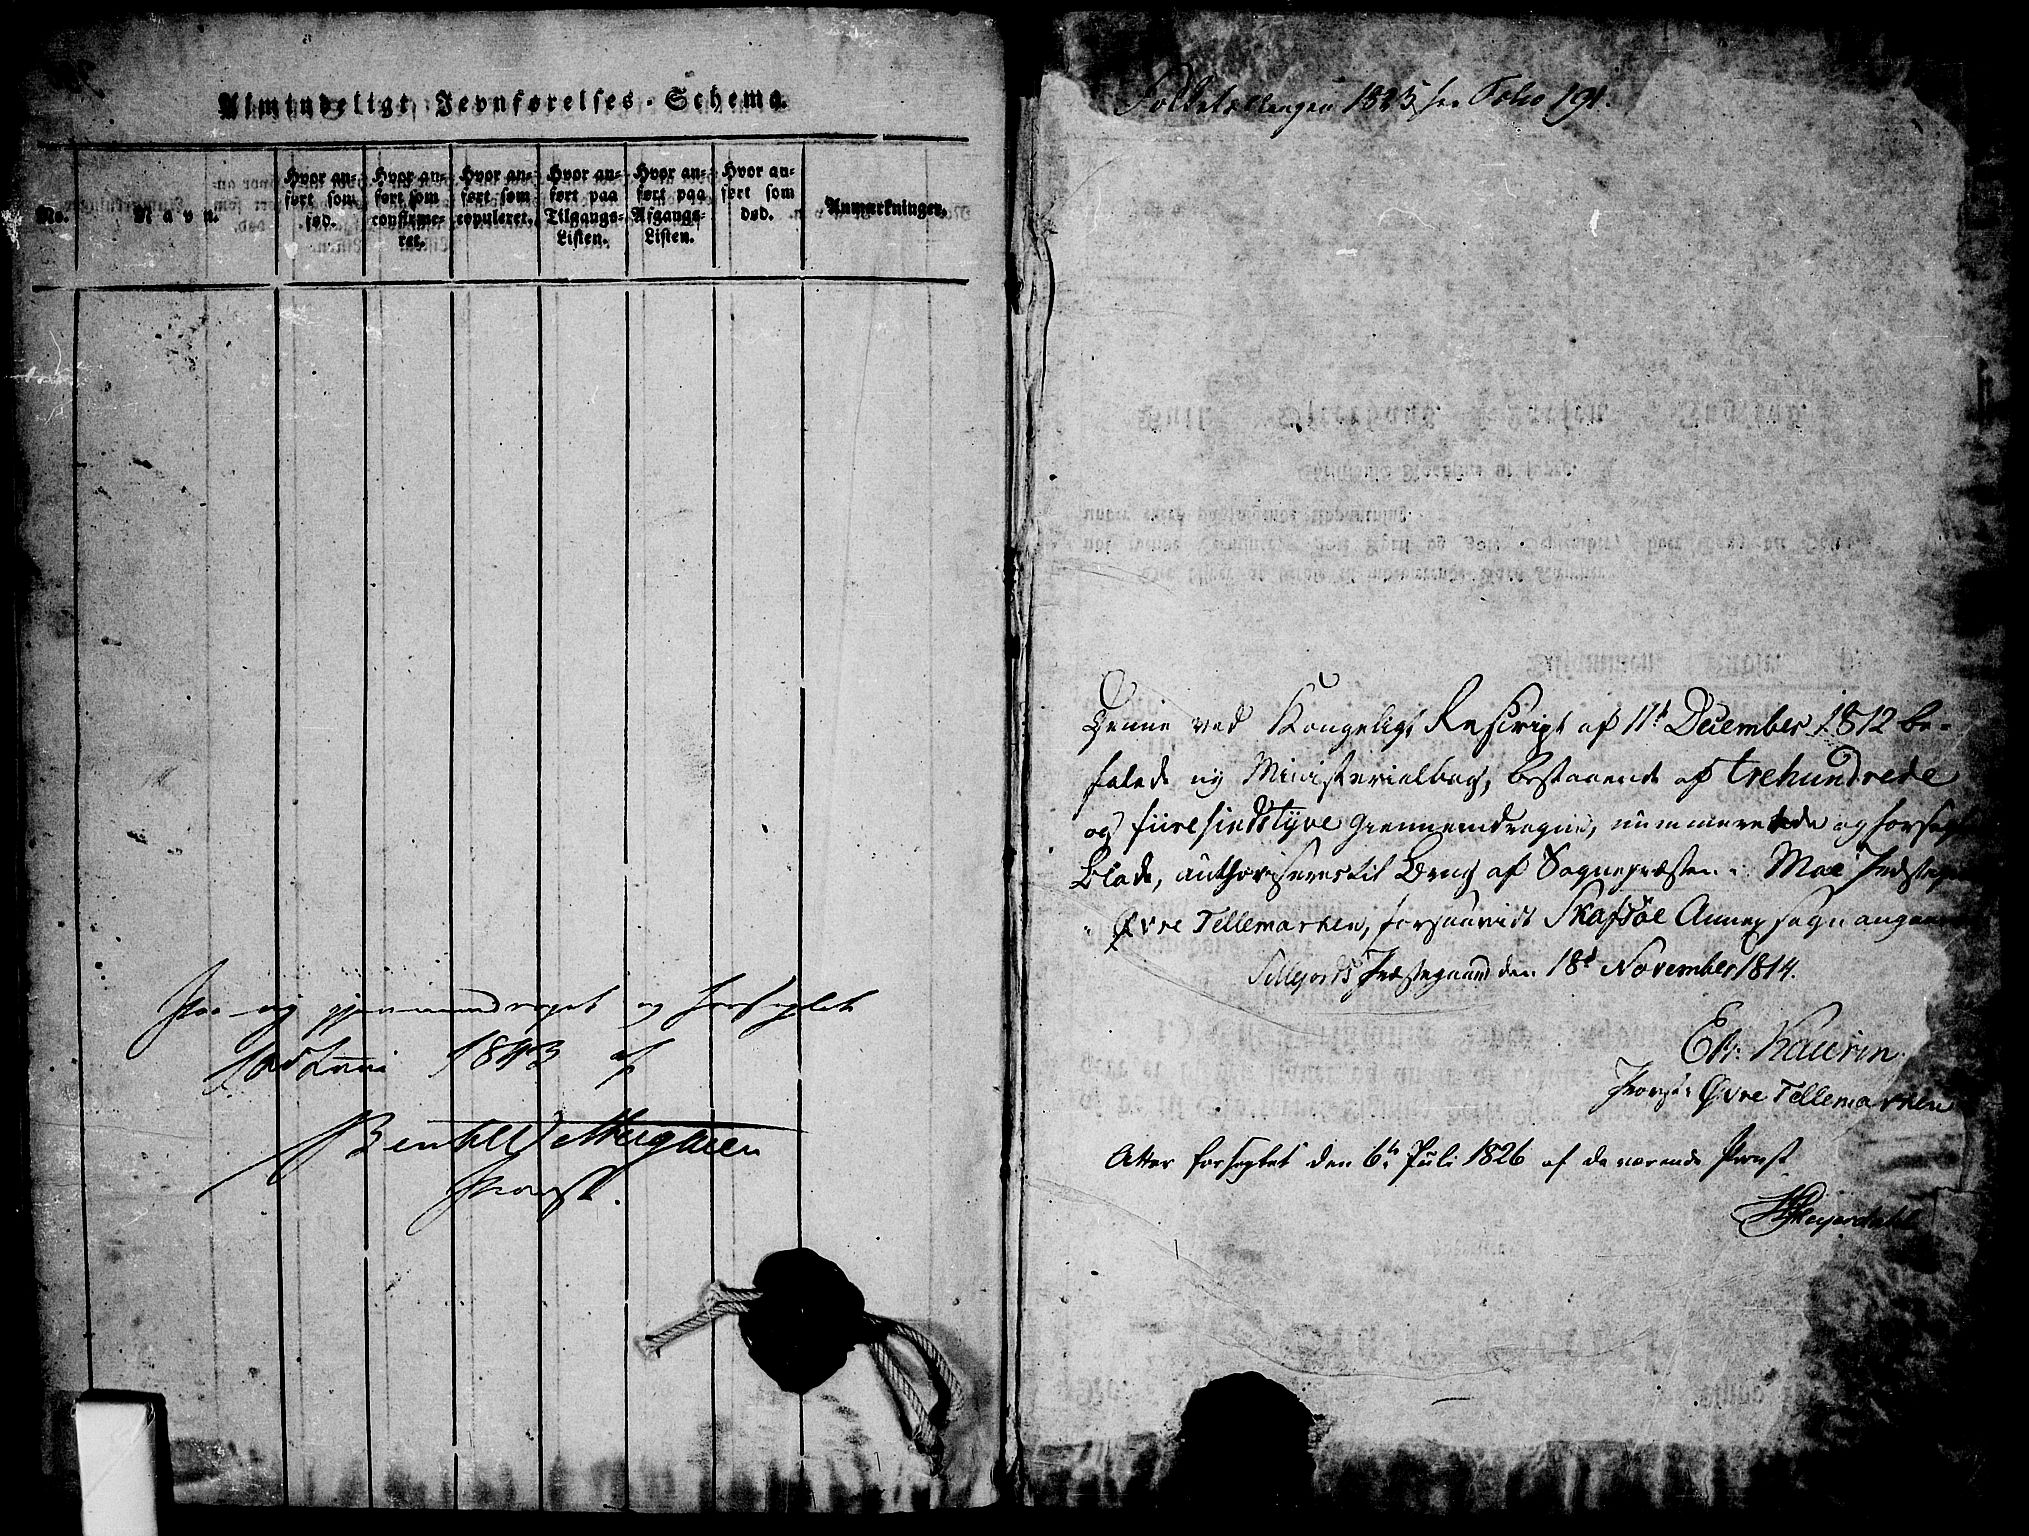 Almindeligt Jevnførelses-Schema.
No.
Navn.
Hvor an-
ført som
fød.
Hvor an-
ført som
confirme-
ret.
Hvor an-
ført som
copuleret.
Hvor an-
ført paa
Tilgangs-
Listen.
Hvor an-
ført paa
Afgangs-
Listen.
Hvor an-
ført som
død.
Anmærkninger.
Paa ny gjennemdraget og forseglet
Juni 1843 af
Provst.
Folketællingen 1825 see Folio 191.
Denne ved Kongeligt Rescript af 11t December 1812 be-
falede ny Ministerialbog, bestaaende af trehundrede
og fiiresindstyve giennemdragne, nummererede og forseglede
Blade, authoriseres til Brug af Sognepræsten i Moe
i Øvre Tellemarken, forsaavidt Skafsöe Annexsogn angaaer
Sillejords Præstegaard den 18d November 1814.
Provst i Øvre Tellemarken
Atter forseglet den 6te Juli 1826 af daværende Provst